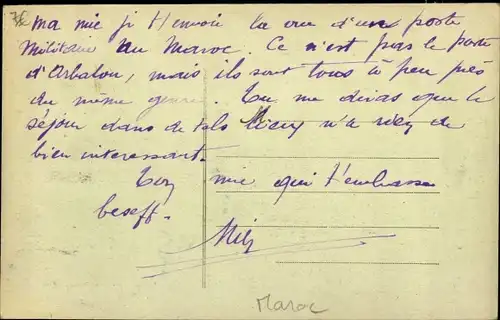 ma mie je t'envoie la vue d'un poste
militaire du Maroc. Ce n'est pas le poste
d'Arbalou, mais ils sont tous à peu près
du même genre. Tu me diras que le
séjour dans de tels lieux n'a rien de
bien interessant.
Ton mie qui t'embrasse
beseff.
Maroc